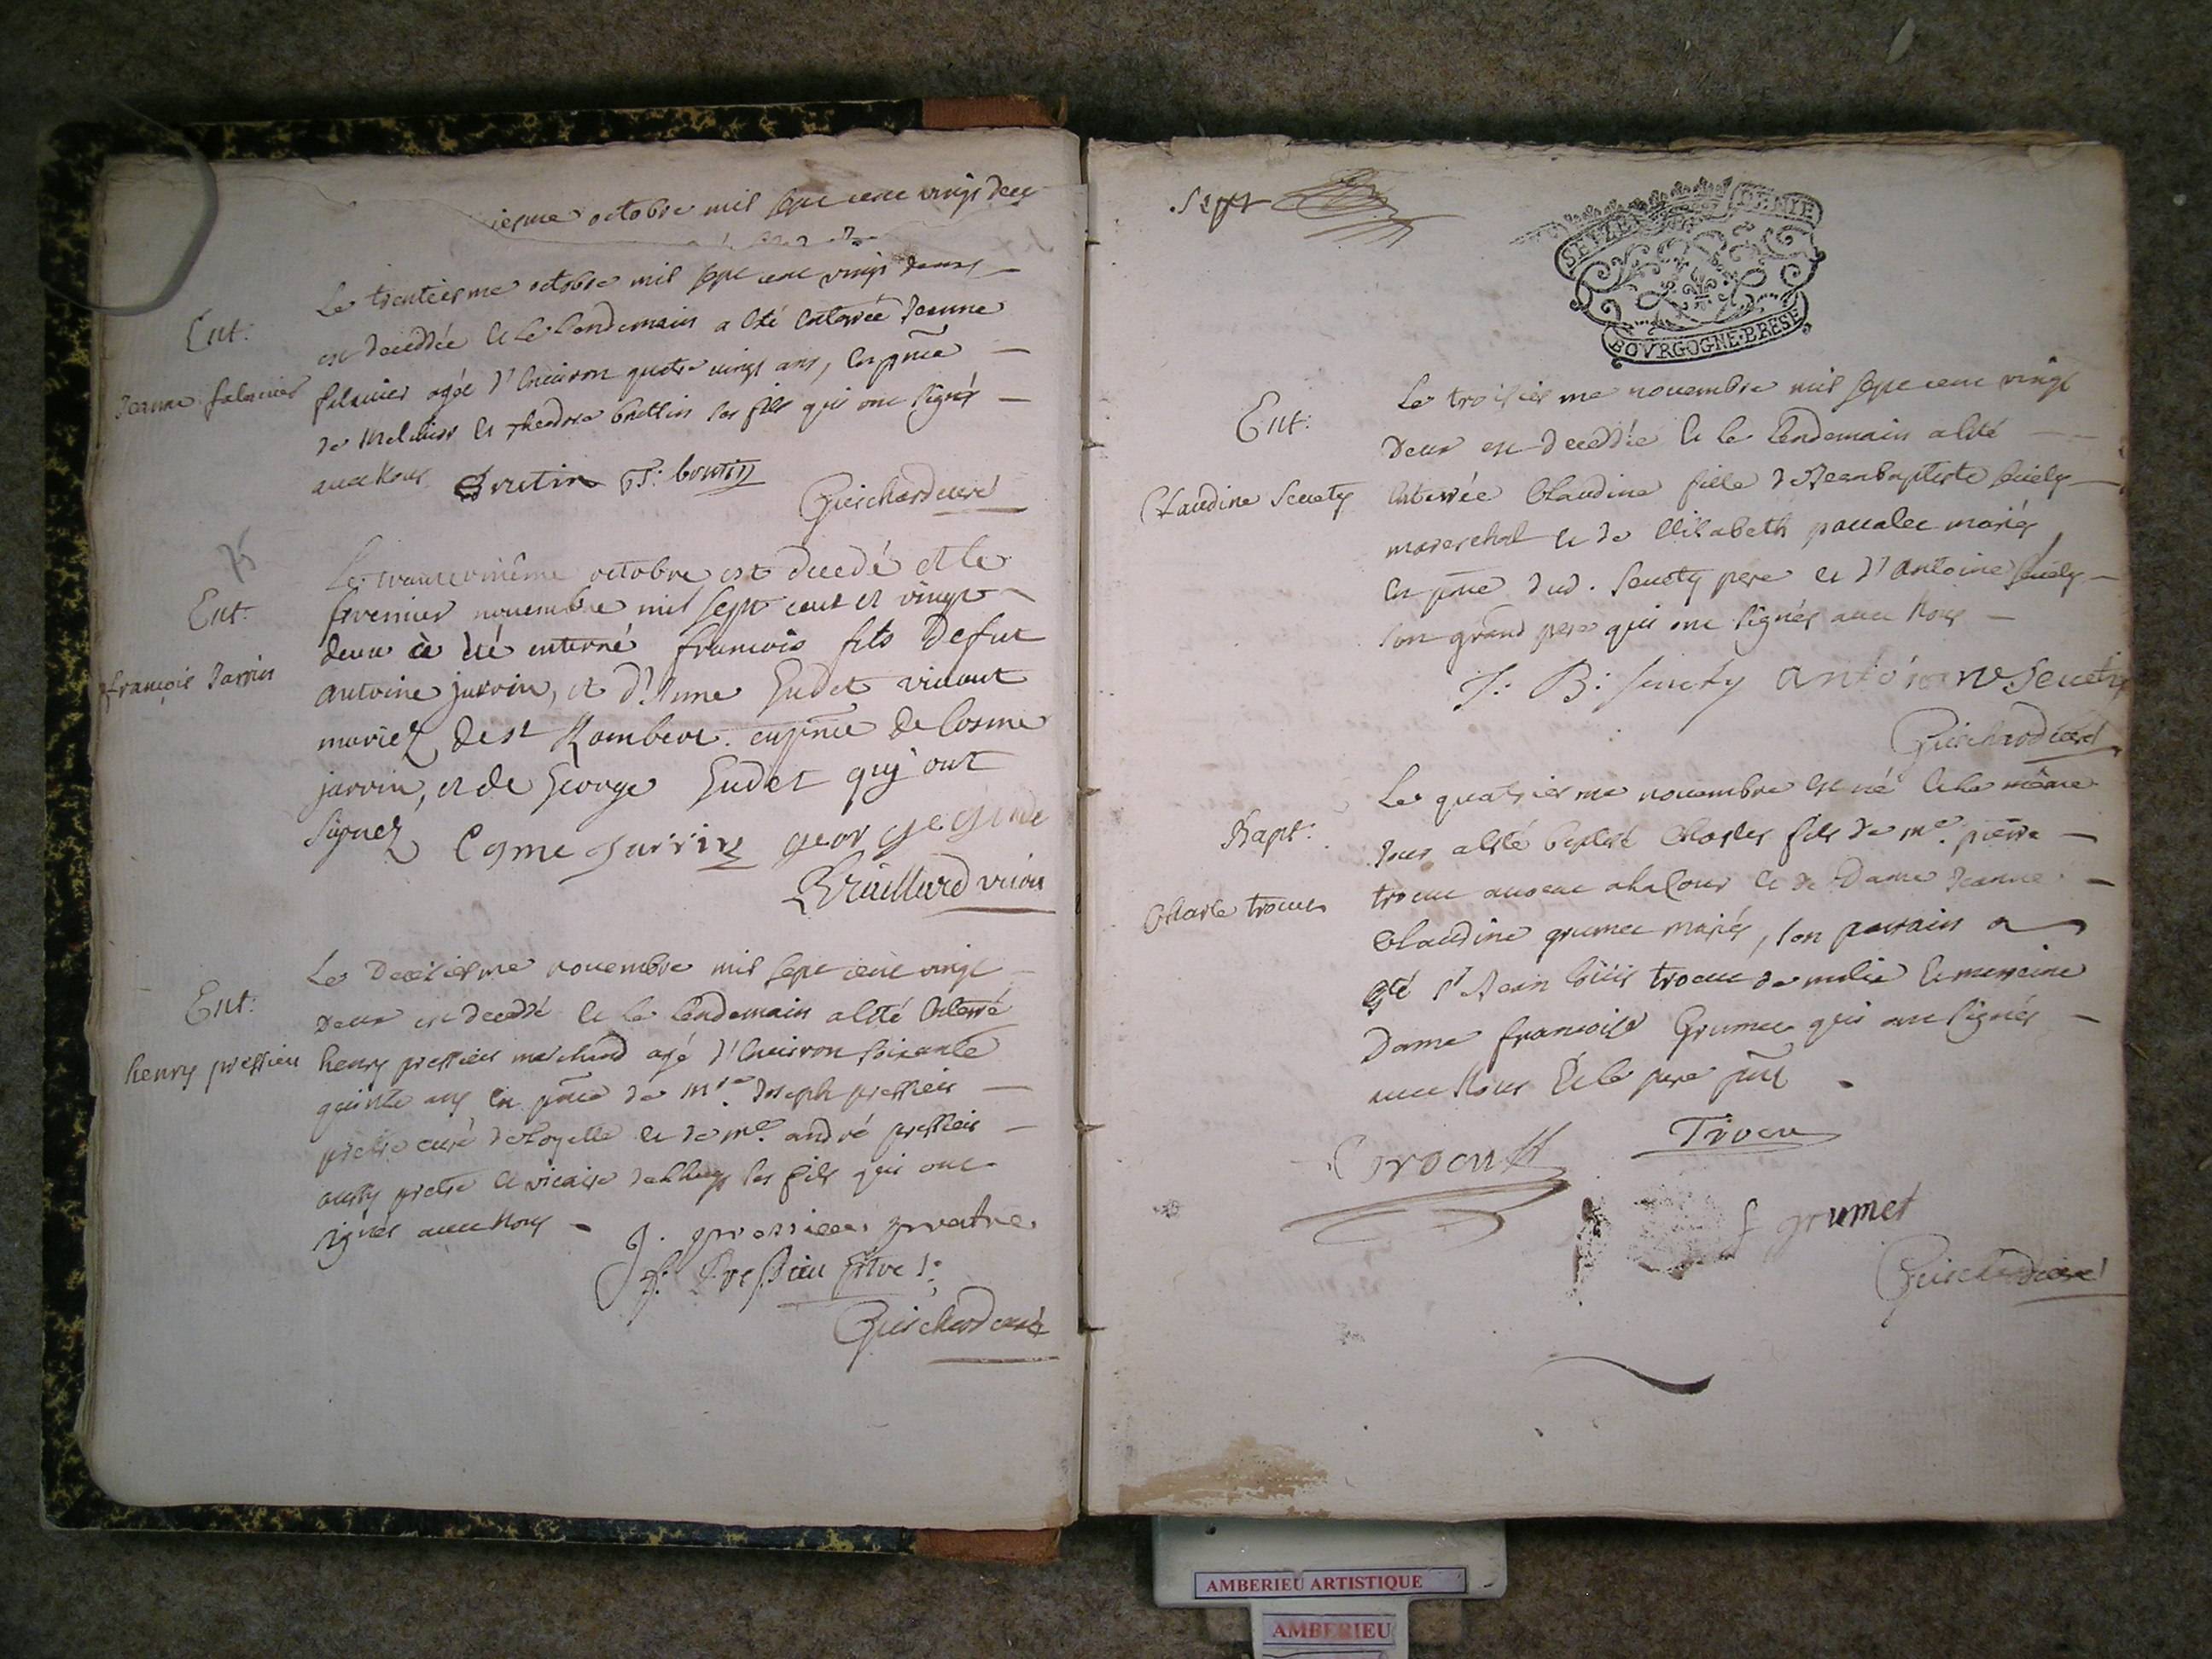 iesme octobre mil sept cent vingt deux
Ent:
Jeanne falavier
Le trentiesme octobre mil sept cent vingt deux
est decedée et le lendemain a esté enterrée Jeanne
falavier agée d'environ quatre vingt ans, en pnce
de Melchior et Theodore brettin ses fils qui ont signés
avec Nous
T: brutin
Guichard curé
Ent.
françois Jarrin
octobre est decedé et le
premier novembre mil sept cent et vingt
deux a été enterré francois fils defut
antoine jarrin, et d'Anne Gudet vivant
mariez de st Rambert. en pnce de Cosme
jarrin, et de George Gudet quy ont
signez Come Jarrin george
vicaire
Ent:
henry pressieu
Le deuxiesme novembre mil sept cent vingt
deux est decedé et le lendemain a esté enterré
henry pressieu marchand agé d'environ soixante
quinze ans en pnce de Mre Joseph pressieu
pretre curé de et de Mre andré pressieu
aussy pretre et vicaire ses fils qui ont
signés avec Nous
J. pressieu pretre
Guichard curé
Sept
SEIZE DENIE
BOURGOGNE·BRESE
Ent:
Claudine Seuety
Le troisiesme novembre mil sept cent vingt
deux est decedée et le lendemain a esté
enterrée Claudine fille de Jeanbaptiste Seuety
mareschal et de Elisabeth mariés
en pnce dud. Seuety pere et d'antoine Seuety
son grand pere qui ont signés avec Nous
J: B: Seuety antoine Seuety
Guichard curé
Bapt:
Charle trocu
Le quatriesme novembre est né et le même
jour a esté baptisé Charles fils de Me pierre
trocu avocat a la Cour et de Dame Jeanne
Claudine grumet mariés, son parrain a
esté Sr Jean louis trocu et marreine
Dame francoise Grumet qui ont signés
avec Nous et le pere pnt
Trocu
f grumet
Guichard curé
AMBERIEU ARTISTIQUE
AMBERIEU